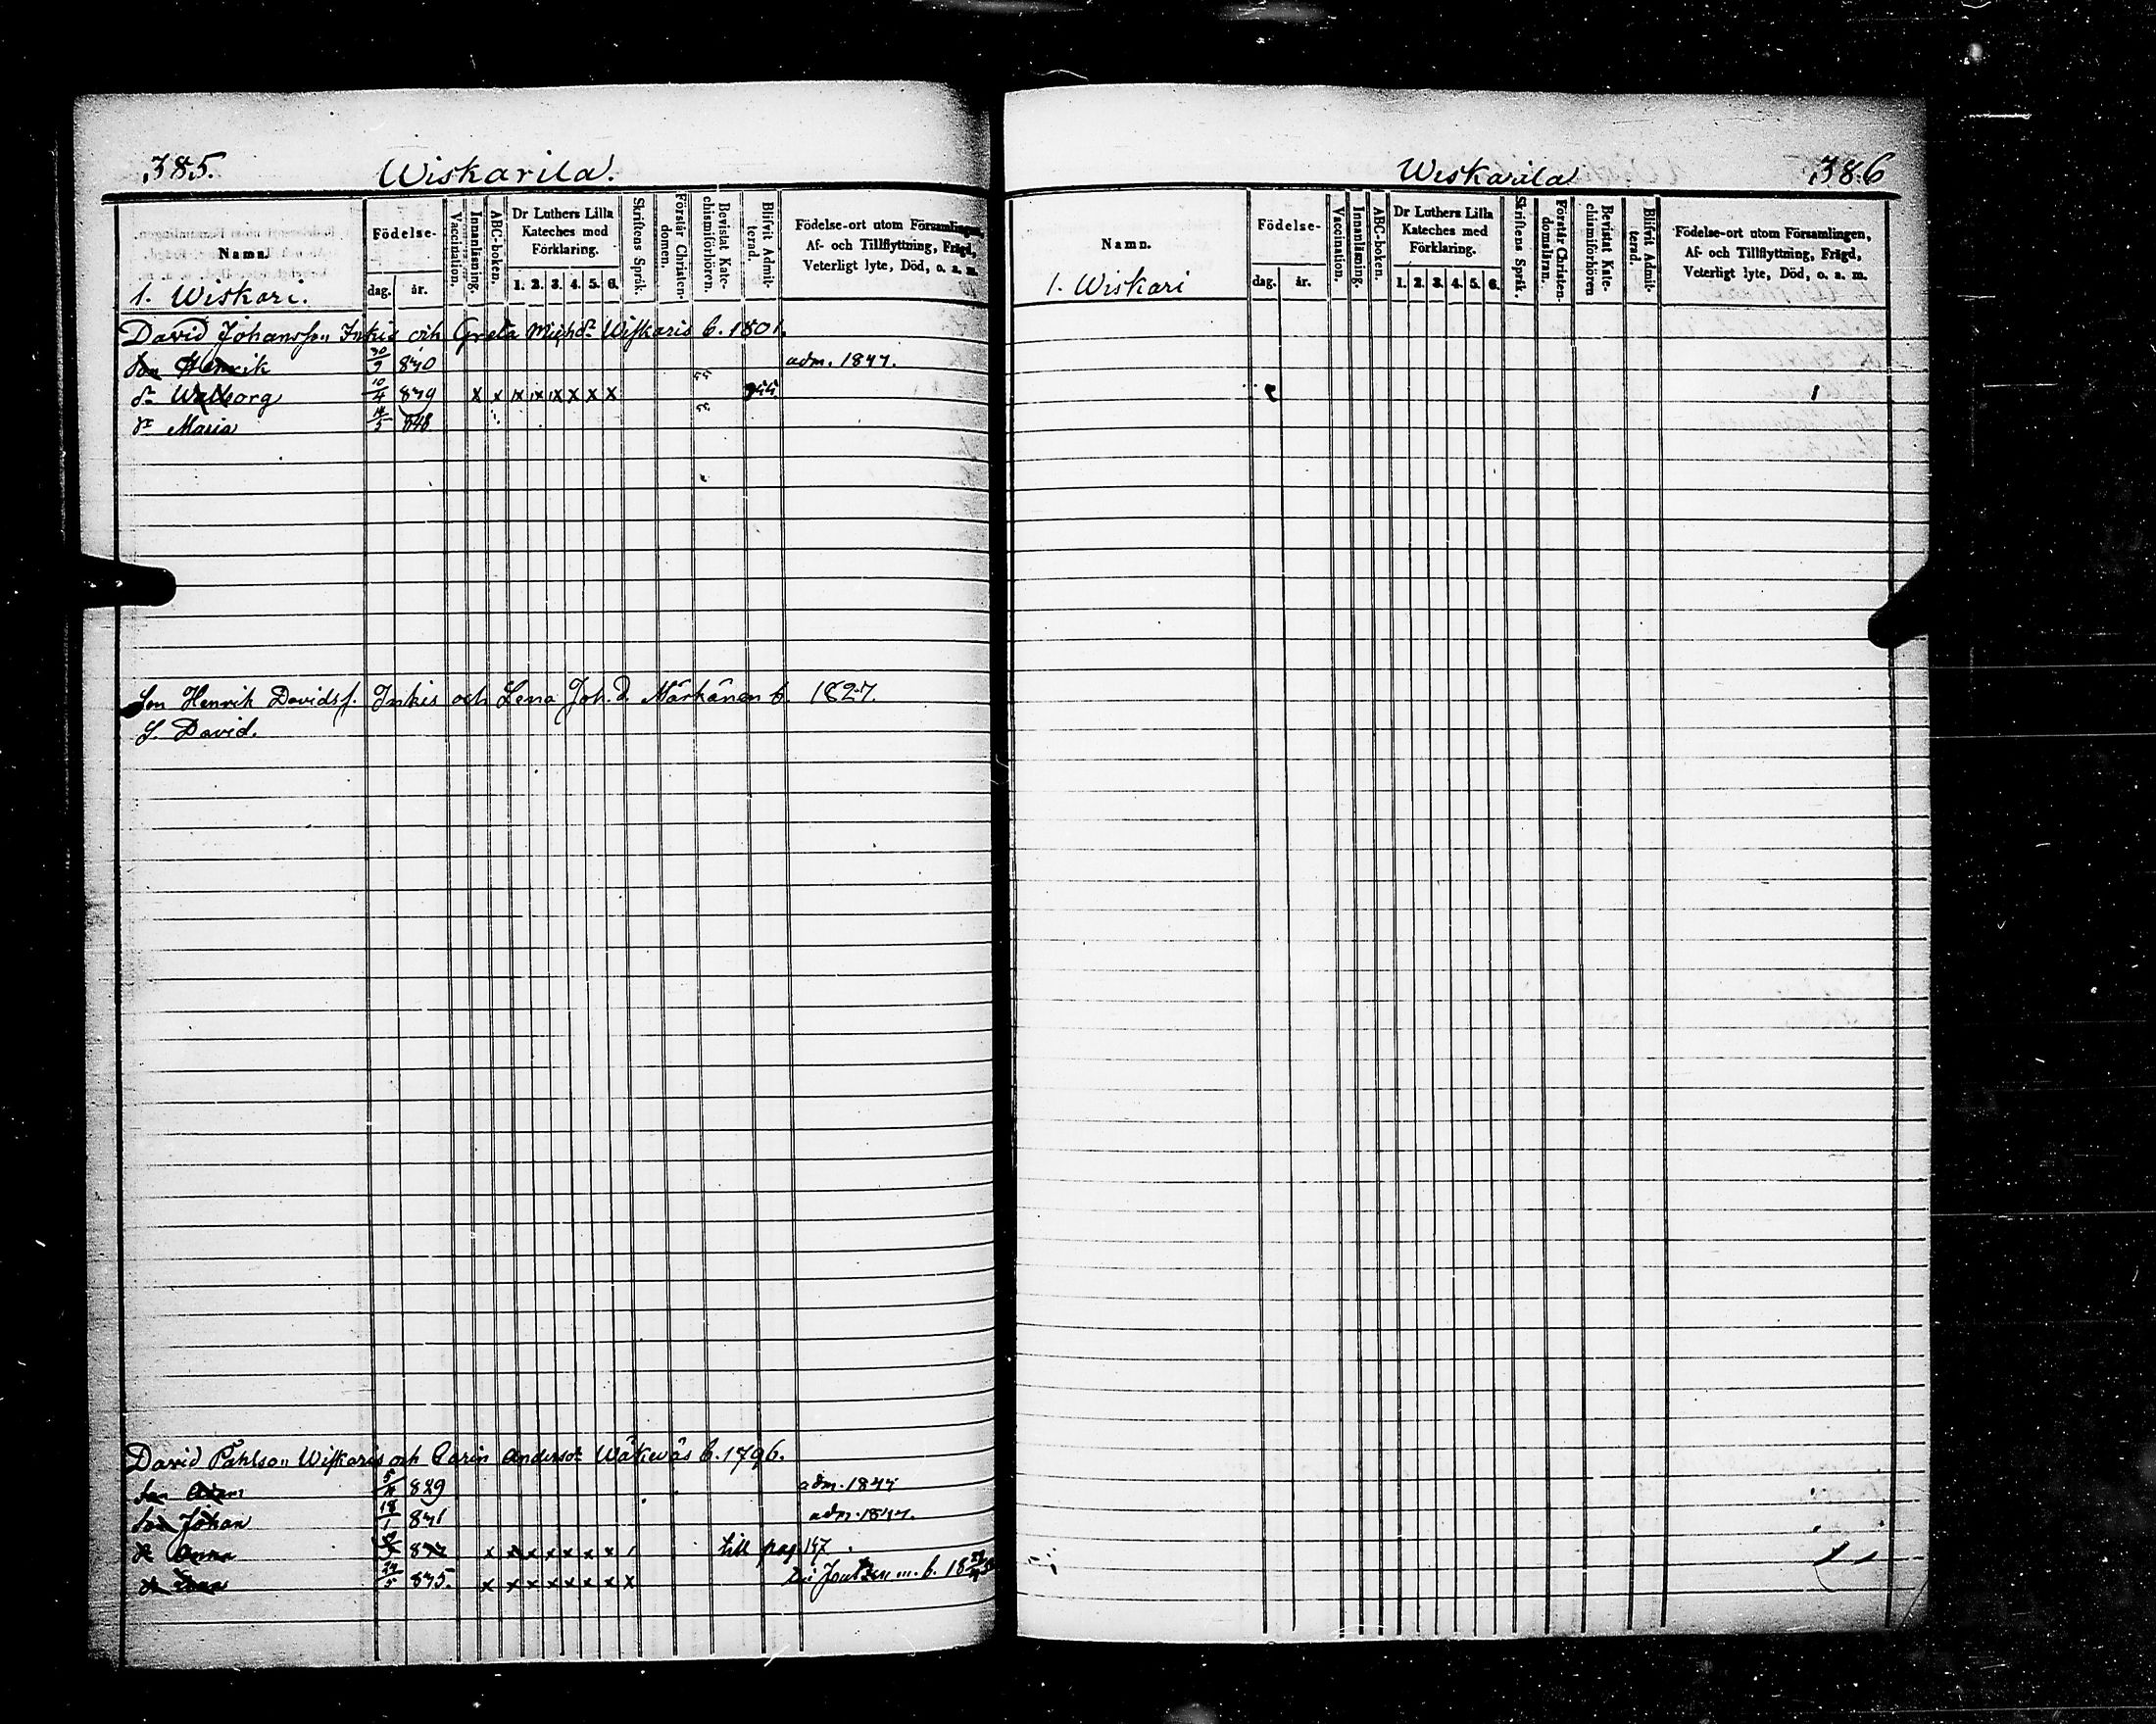 385. Wiskarila.
Namn. Födelse- dag. år. Vaccination. Innanläsning. ABC-boken. Dr Luthers Lilla Kateches med Förklaring. 1. 2. 3. 4. 5. 6. Skriftens Språk. Förstår Christendomen. Bevistat Katechismiförhören. Blifvit Admitterad. Födelse-ort utom Församlingen, Af- och Tillflyttning, Frägd, Veterligt lyte, Död, o. s. m.
1. Wiskari.
David Johanss:n Inkis och Greta Michsd:r Wiskaris b. 1801.
Son Henrik 30/9 830 adm. 1847.
d:r Walborg 10/4 839 x x x x x x x x 55
d:r Maria 14/5 848
Son Henrik Davidss. Inkis och Lena Joh. d. Märkänen b. 1827.
S. David.
David Påhlson Wiskaris och Carin Andersd:r Wäkeväs b. 1796.
Son 829 adm. 1847
Son Johan 18/1 831 adm. 1847.
d:r Anna x x x x x x x till pag. 147.
24/5 835. x x x x x x x x
Wiskarila 386
Namn. Födelse- dag. år. Vaccination. Innanläsning. ABC-boken. Dr Luthers Lilla Kateches med Förklaring. 1. 2. 3. 4. 5. 6. Skriftens Språk. Förstår Christendomsläran. Bevistat Katechismiförhören Blifvit Admitterad. Födelse-ort utom Församlingen, Af- och Tillflyttning, Frägd, Veterligt lyte, Död, o. s. m.
1. Wiskari